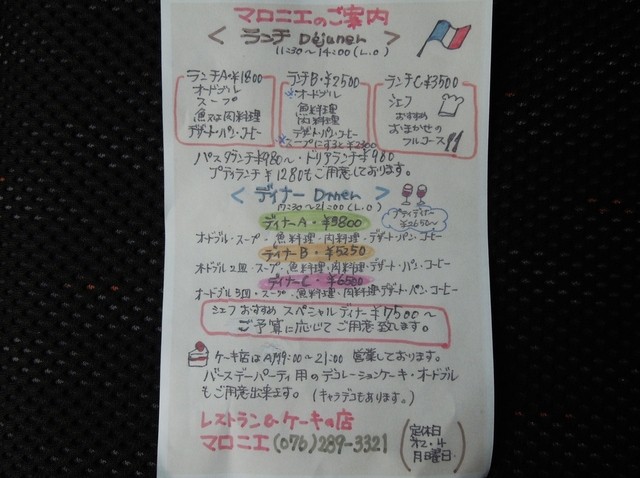 マロニエのご案内
< ランチ Déjuner >
11:30～14:00(L.O)
ランチA・¥1800
オードブル
スープ
魚又は肉料理
デザート・パン・コーヒー
ランチB・¥2500
※オードブル
魚料理
肉料理
デザート・パン・コーヒー
※スープにすると¥2400
ランチC ¥3500
シェフ
おすすめ
おまかせの
フルコース
パスタランチ¥980～・ドリアランチ¥960
プティランチ¥1280もご用意しております。
< ディナー Dinner >
17:30～21:00(L.O)
プティディナー
¥2650～
ディナーA・¥3800
オードブル・スープ・魚料理・肉料理・デザート・パン・コーヒー
ディナーB・¥5250
オードブル2皿・スープ・魚料理・肉料理・デザート・パン・コーヒー
ディナーC・¥6500
オードブル3皿・スープ・魚料理・肉料理・デザート・パン・コーヒー
シェフおすすめ スペシャルディナー¥7500～
ご予算に応じてご用意致します。
ケーキ店はAM9:00～21:00 営業しております。
バースデーパーティ用のデコレーションケーキ・オードブル
もご用意出来ます。(キャラデコもあります。)
レストラン&ケーキの店
マロニエ(076)289-3321
定休日
第2・4
月曜日